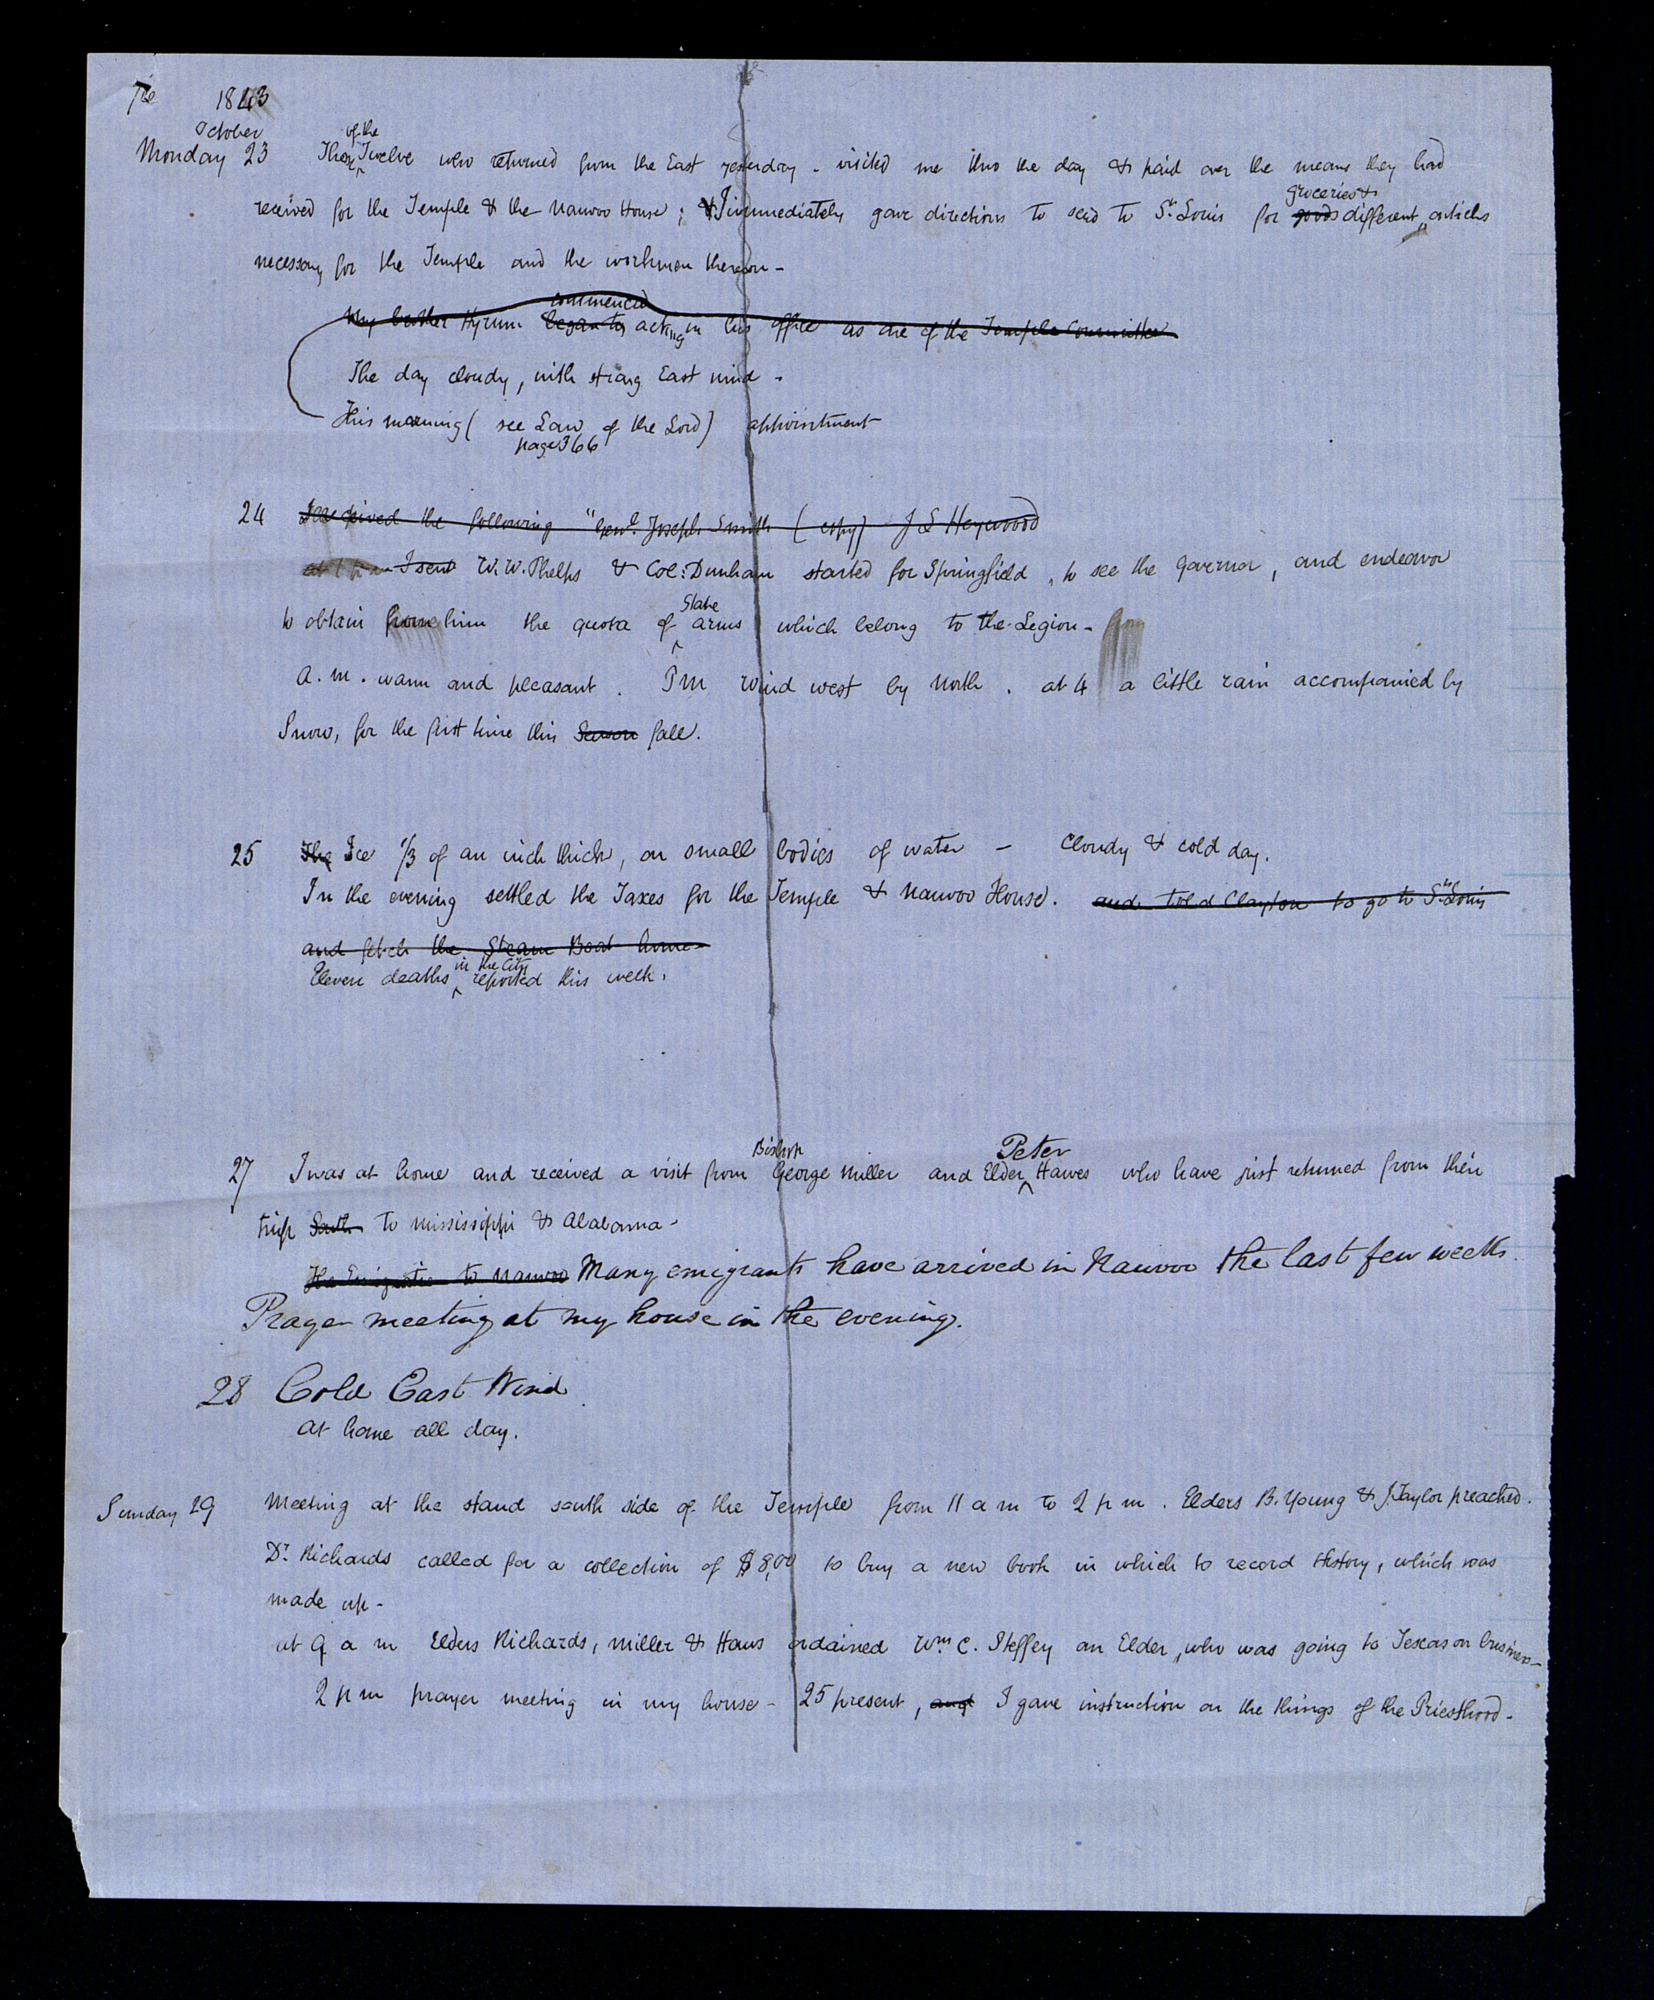 1843
October
Monday 23 Those of the Twelve who returned from the East yesterday - visited me thro the day & paid over the means they had
received for the Temple & the Nauvoo House; & I immediately gave directions to send to St. Louis for goods groceries & different articles
necessary for the Temple and the workmen thereon -
My brother Hyrum began to commenced acting in his office as one of the Temple Committee
The day cloudy, with strong East wind -
This morning (see Law of the Lord) appointment
page 366
24 I received the following "Genl. Joseph Smith (copy) J L Heywood
at 1 p m I sent W. W. Phelps & Col: Dunham started for Springfield, to see the Governor, and endeavor
to obtain from him the quota of State arms which belong to the Legion -
a. m. warm and pleasant. P M wind west by North. at 4 a little rain accompanied by
Snow, for the first time this Season fall.
25 The Ice 1/3 of an inch thick, on small bodies of water - Cloudy & cold day.
In the evening settled the Taxes for the Temple & Nauvoo House. and told Clayton to go to St. Louis
and fetch the Steam Boat home -
Eleven deaths in the City reported this week.
27 I was at home and received a visit from Bishop George Miller and Elder Peter Hawes who have just returned from their
trip South to Mississippi & Alabama -
The Emigration to Nauvoo Many emigrants have arrived in Nauvoo the last few weeks.
Prayer meeting at my house in the evening.
28 Cold East Wind
at home all day.
Sunday 29 Meeting at the stand south side of the Temple from 11 a m to 2 p m. Elders B. Young & J. Taylor preached.
Dr. Richards called for a collection of $8,00 to buy a new book in which to record History, which was
made up -
at 9 a m Elders Richards, Miller & Haws ordained Wm. C. Steffey an Elder, who was going to Texas on business -
2 p m prayer meeting in my house - 25 present, and I gave instruction on the things of the Priesthood -